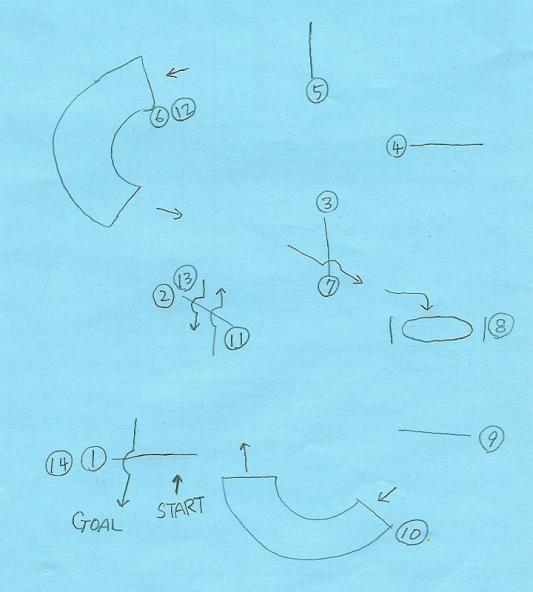 5
6 12
4
3
7
13
2
11
8
14 1
9
GOAL START
10